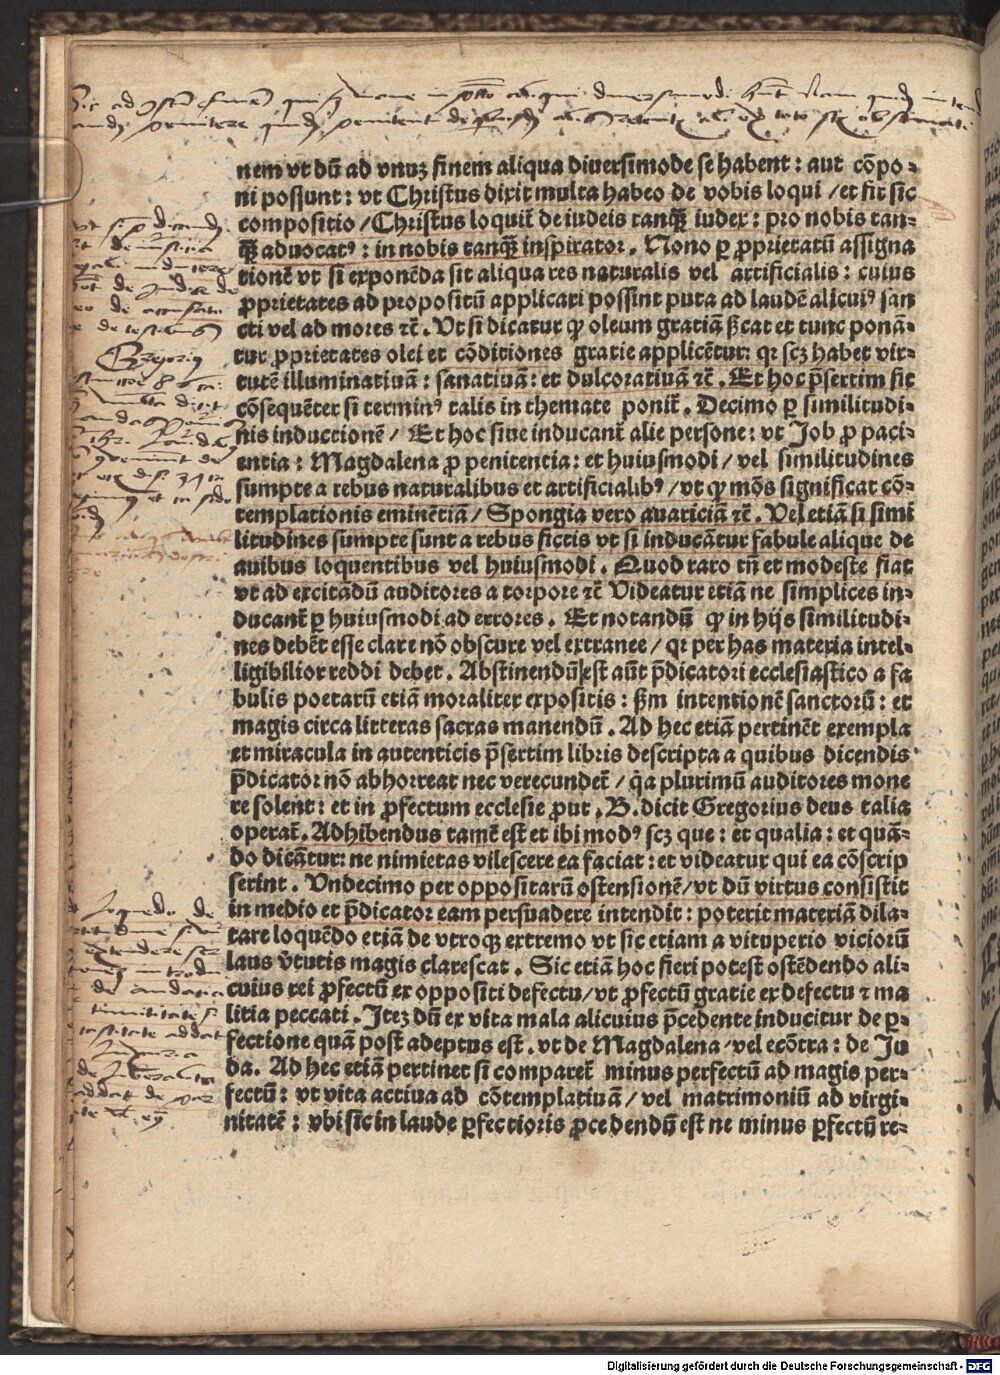 nem vt dū ad vnuꝫ finem aliqua diuersimode se habent: aut cōpo⸗
ni possunt: vt Christus dixit multa habeo de vobis loqui /et fit sic
compositio /Christus loquit̄ de iudeis tanq̄ƺ iudex: pro nobis tan⸗
q̄ƺ aduocatꝰ: in nobis tanq̄ƺ inspirator. Nono ꝑ ꝓprietatū assigna
tionē vt si exponēda sit aliqua res naturalis vel artificialis: cuius
ꝓprietates ad propositū applicari possint puta ad laudē alicuiꝰ san
cti vel ad mores ⁊c̄. Vt si dicatur ꝙ oleum gratiā s̄cat et tunc ponā⸗
tur ꝓprietates olei et cōditiones gratie applicētur: qꝛ scꝫ habet vir⸗
tutē illuminatiuā: sanatiuā: et dulcoratiuā ⁊c̄. Et hoc p̄sertim fit
cōsequēter si terminꝰ talis in themate ponit̄. Decimo ꝑ similitudi⸗
nis inductionē/ Et hoc siue inducant̄ alie persone: vt Job ꝓ paci⸗
entia: Magdalena ꝓ penitentia: et huiusmodi/ vel similitudines
sumpte a rebus naturalibus et artificialibꝰ /vt ꝙ mōs significat cō⸗
templationis eminētiā/ Spongia vero auariciā ⁊c̄. Vel etiā si simi
litudines sumpte sunt a rebus fictis vt si inducātur fabule alique de
auibus loquentibus vel huiusmodi. Quod raro tn̄ et modeste fiat
vt ad excitādū auditores a torpore ⁊c̄ Videatur etiā ne simplices in⸗
ducant̄ ꝑ huiusmodi ad errores. Et notandū ꝙ in hijs similitudi⸗
nes debēt esse clare nō obscure vel extranee/ qꝛ per has materia intel⸗
ligibilior reddi debet. Abstinendū est aūt p̄dicatori ecclesiastico a fa
bulis poetarū etiā moraliter expositis: ẜm intentionē sanctorū: et
magis circa litteras sacras manendū. Ad hec etiā pertinēt exempla
et miracula in autenticis p̄sertim libris descripta a quibus dicendis
p̄dicator nō abhorreat nec verecundet̄/ q̄a plurimū auditores mone
re solent: et in ꝓfectum ecclesie ꝓut .B. dicit Gregorius deus talia
operat̄. Adhibendus tamē est et ibi modꝰ scꝫ que: et qualia: et quā⸗
do dicātur: ne nimietas vilescere ea faciat: et videatur qui ea cōscrip
serint. Vndecimo per oppositarū ostensionē/vt dū virtus consistit
in medio et p̄dicator eam persuadere intendit: poterit materiā dila⸗
tare loquēdo etiā de vtroqꝫ extremo vt sic etiam a vituperio viciorū
laus v̄tutis magis clarescat. Sic etiā hoc fieri potest ostēdendo ali⸗
cuius rei ꝓfectū ex oppositi defectu/vt ꝓfectū gratie ex defectu ⁊ ma
litia peccati. Iteꝫ dū ex vita mala alicuius p̄cedente inducitur de ꝑ⸗
fectione quā post adeptus est. vt de Magdalena/vel ecōtra: de Ju
da. Ad hec etiā pertinet si comparet̄ minus perfectū ad magis per⸗
fectū: vt vita actiua ad cōtemplatiuā/ vel matrimoniū ad virgi⸗
nitatē: vbi sic in laude ꝑfectioris ꝓcedendū est ne minus ꝑfectū re⸗
Digitalisierung gefördert durch die Deutsche Forschungsgemeinschaft - DFG